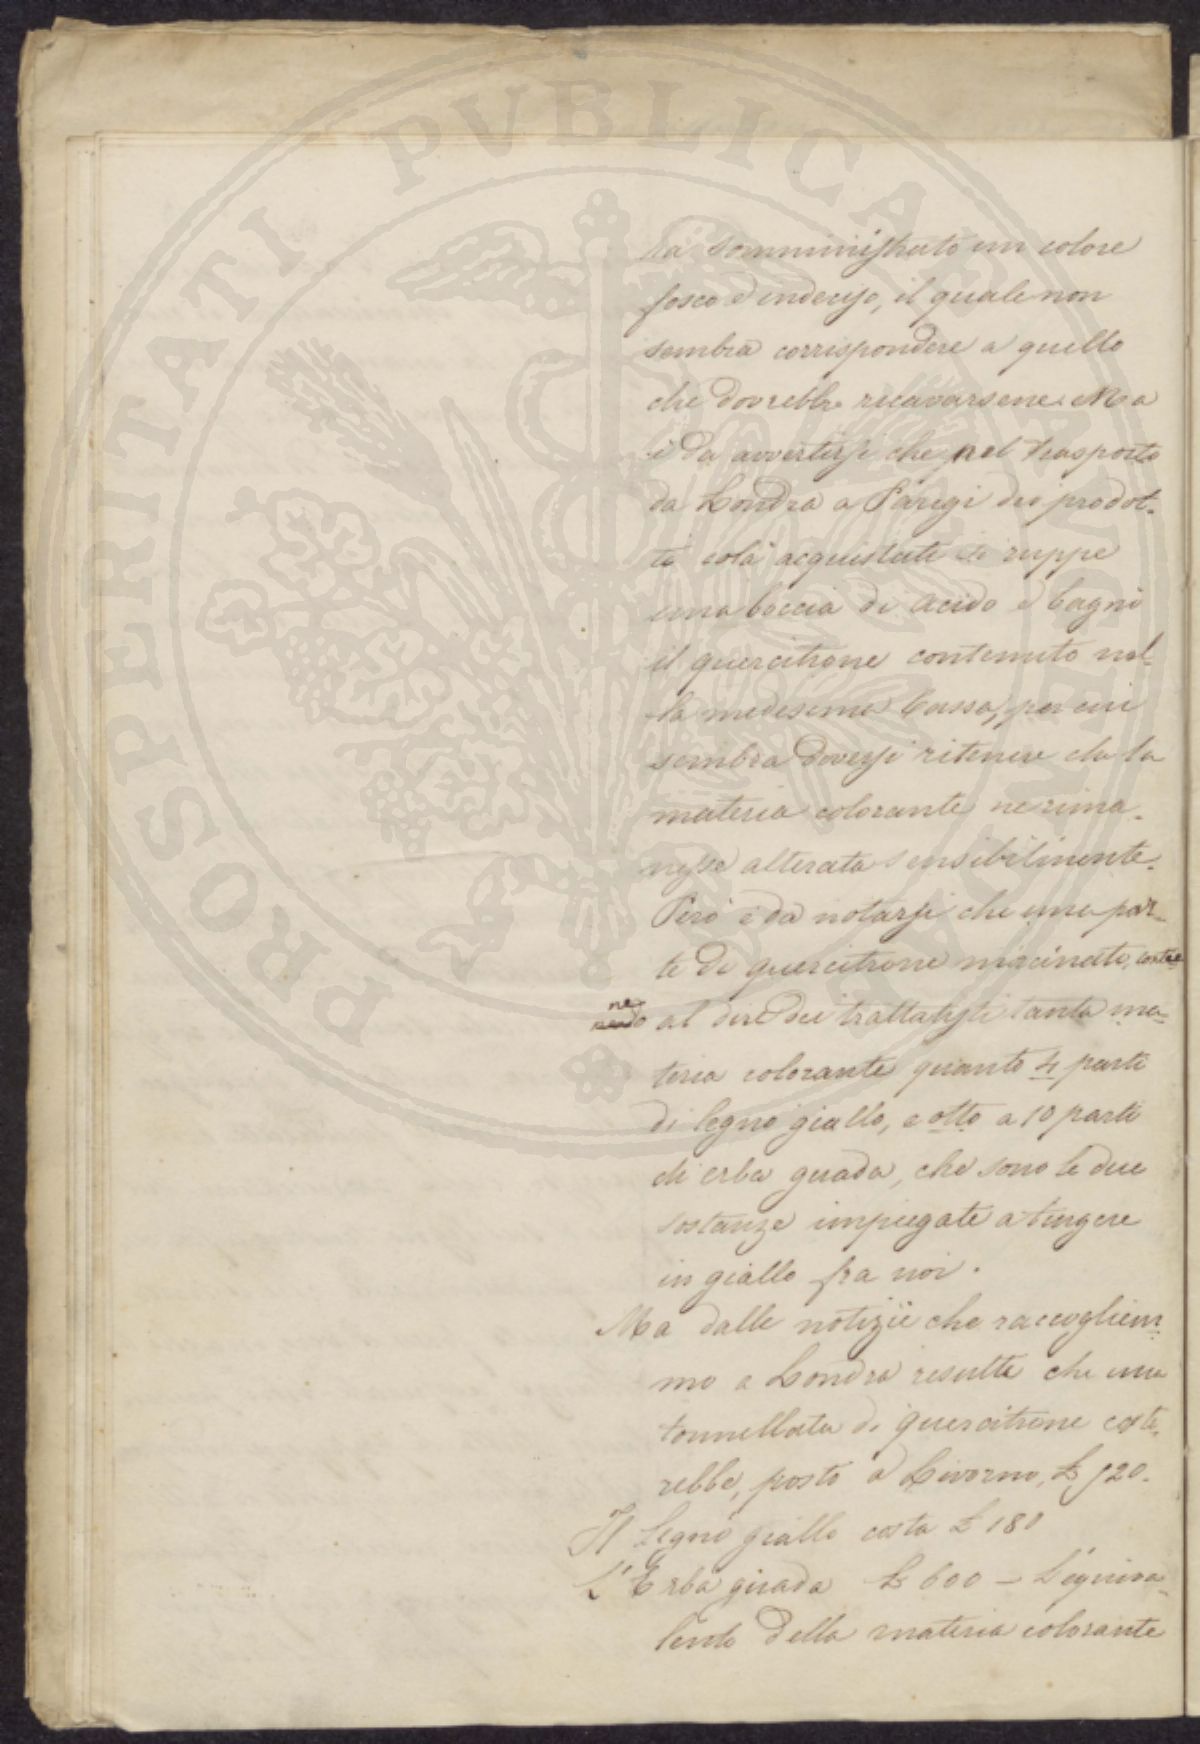 ha somministrato un colore
fosco ed indeciso, il quale non
sembra corrispondere a quello
che dovrebbe ricavarsene. Ma
è da avvertirsi che nel trasporto
da Londra a Parigi dei prodot-
ti colà acquistati si ruppe
una boccia di acido e bagnò
il quercitrone contenuto nel-
la medesima Cassa, per cui
sembra doversi ritenere che la
materia colorante ne rima-
nesse alterata sensibilmente.
Però è da notarsi che una par-
te di quercitrone macinato, conte-
ne al dire dei trattatisti tanta ma-
teria colorante quanto 4 parti
di legno giallo, e otto a 10 parti
di erba guada, che sono le due
sostanze impiegate a tingere
in giallo fra noi.
Ma dalle notizie che raccogliem-
mo a Londra resulta che una
tonnellata di quercitrone coste-
rebbe, posto a Livorno, £ 320.
Il Legno giallo costa £ 180
L'Erba guada £ 600 – L'equiva-
lente della materia colorante
PROSPERITATI PUBLICAE AUGENDAE